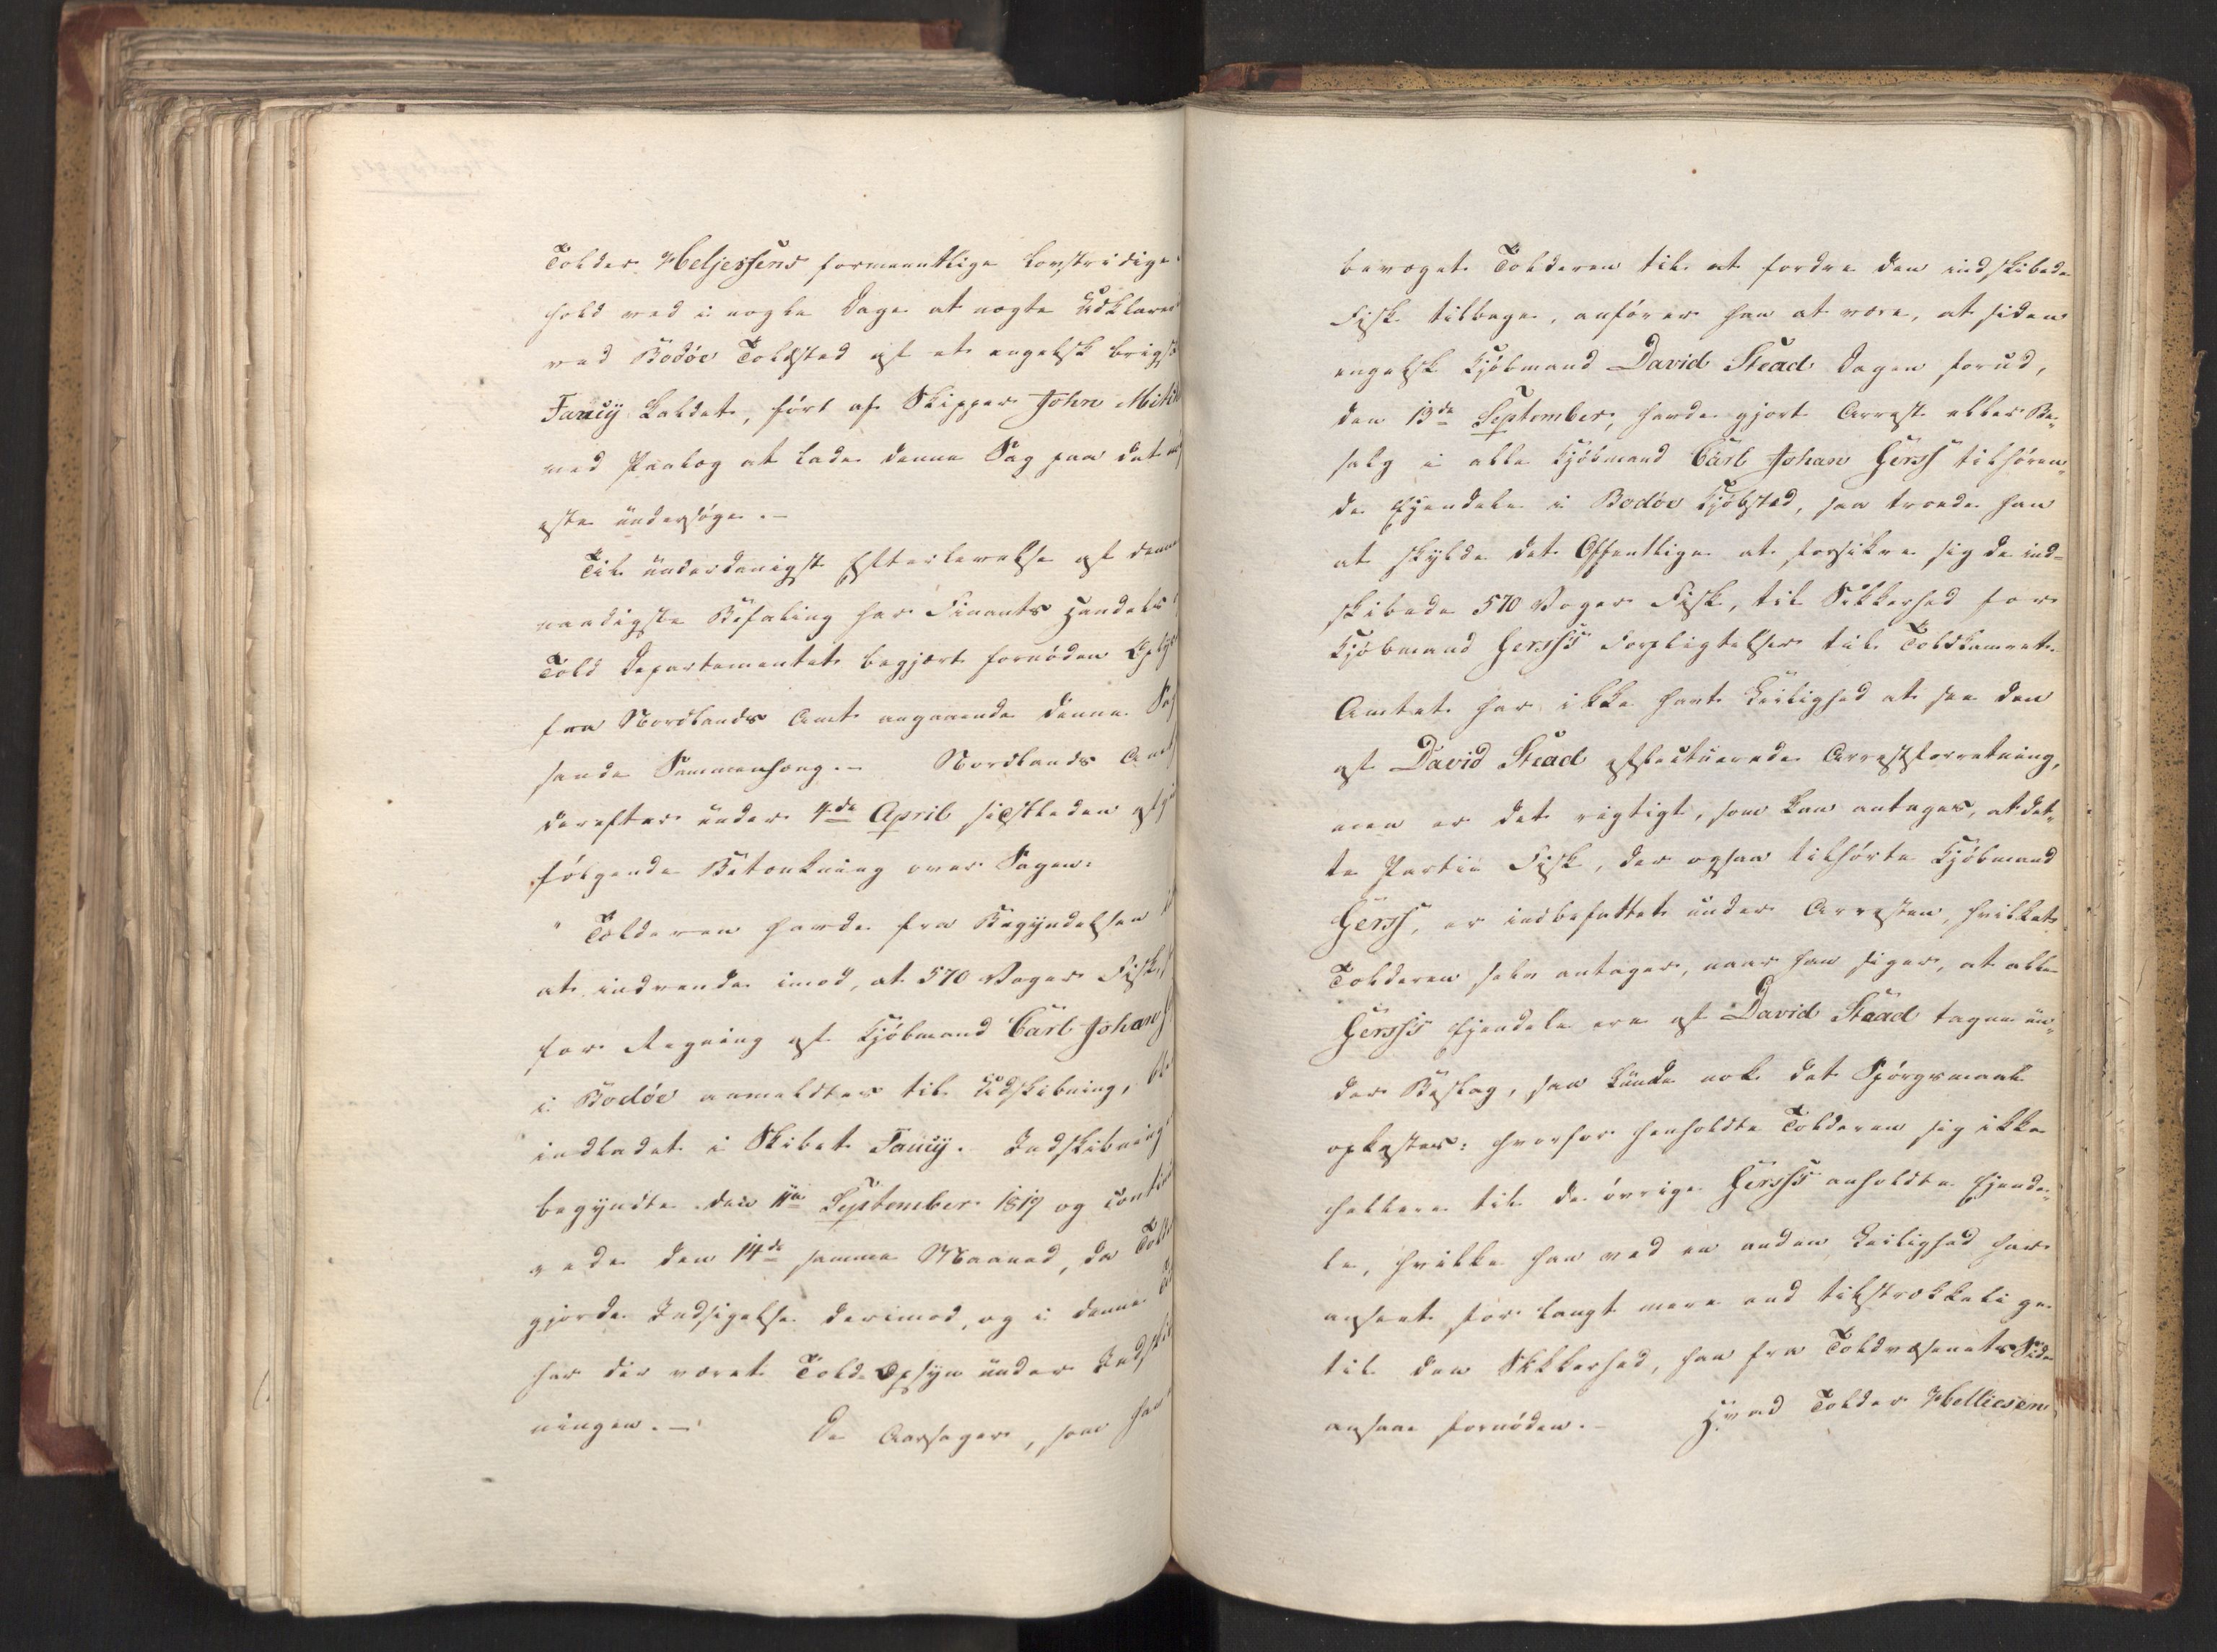 Tolder Heljessens formeentlige lovstridige
hold ved i nogle Dage at nægte Udklarer
ved Bodøe Toldsted af et engelsk Brigs
Fancÿ kaldet, ført af Skipper John Mit
med Paalæg at lade denne Sag paa det
este undersøge.-
Til underdanigst Efterlevelse af denne
naadigste Befaling har Finants Handels
Told Departementet begjært fornøden Oplys
fra Nordlands Amt angaaende denne Sag
sande Sammenhæng.- Nordlands Amt
derefter under 4de April sidstleden afgi
følgende Betænkning over Sagen:
" Tolderen havde fra Begyndelsen
at indvende imod, at 570 Voger Fisk,
for Regning af Kjøbmand Carl Johan
i Bodøe anmeldtes til Udskibning,
indladet i Skibet Fancÿ. Indskibning
begyndte den 11te September 1819 og contin
rede den 14de samme Maaned, da Told
gjorde Indsigelse derimod, og i denne
har der været Told-Opsyn under Indski
ningen.- De Aarsager, som har
bevæget Tolderen til at fordre den indskibede
Fisk tilbage, anfører han at være, at siden
engelsk Kjøbmand David Stead Dagen forud,
den 13de September, havde gjort Arrest eller Be„
salg i alle Kjøbmand Carl Johan Gerss tilhøren„
de Ejendele i Bodøe Kjøbsted, saa troede han
at skylde det Offentlige at forsikre sig de ind-
skibede 570 Voger Fisk, til Sikkerhed for
Kjøbmand Gerss's Forpligtelser til Toldkammeret.
Amtet har ikke havt Leilighed at see den
af David Stead effectuerede Arrestforretning,
men er det rigtigt, som kan antages, at det„
te Partie Fisk, der ogsaa tilhørte Kjøbmand
Gerss, er indbefattet under Arresten, hvilket
Tolderen selv antager, naar han siger, at alle
Gerss's Ejendele ere af David Stead tagne un„
der Beslag, saa kunde nok det Spørgsmaal
opkastes: hvorfor henholdte Tolderen sig ikke
hellere til de øvrige Gerss's anholdte Ejende„
le, hvilke han ved en anden Leilighed har
anseet for langt mere end tilstrækkelige
til den Sikkerhed, han fra Toldvæsenets Side
ansaae fornøden.- Hvad Tolder Helliesen